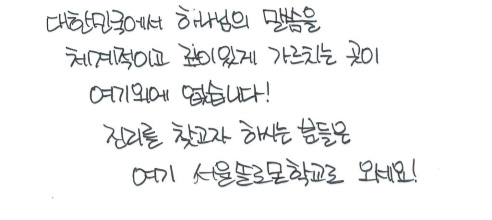 대한민국에서 하나님의 말씀을
체계적이고 깊이있게 가르치는 곳이
여기외에 없습니다!
진리를 찾고자 하시는 분들은
여기 서울뜨로문학교로 오세요!